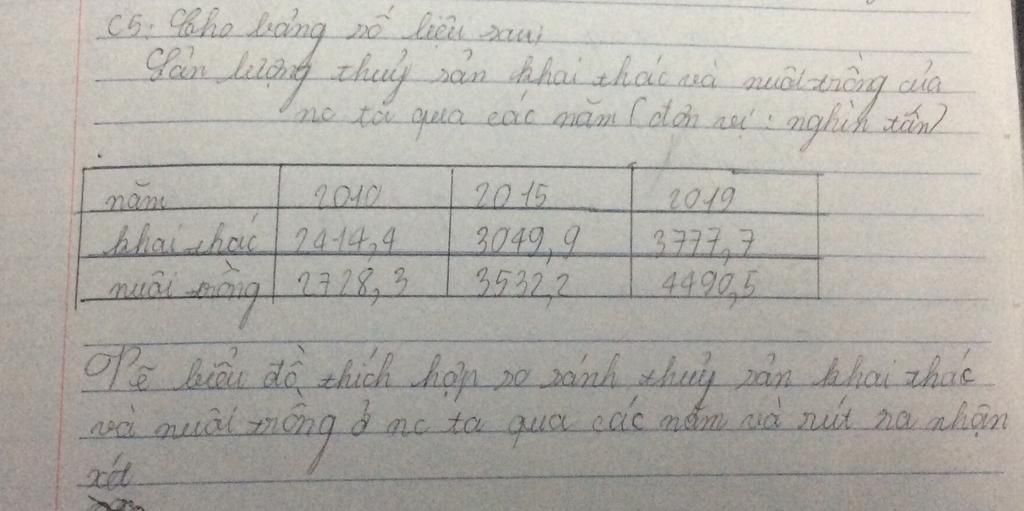 C5: Cho bảng số liệu sau:
Sản lượng thuỷ sản khai thác và nuôi trồng của
nc ta qua các năm (đơn vị: nghìn tấn)
năm 2010 2015 2019
khai thác 2414,4 3049,9 3777,7
nuôi trồng 2728,3 3532,2 4490,5
Vẽ biểu đồ thích hợp so sánh thuỷ sản khai thác
và nuôi trồng ở nc ta qua các năm và rút ra nhận
xét